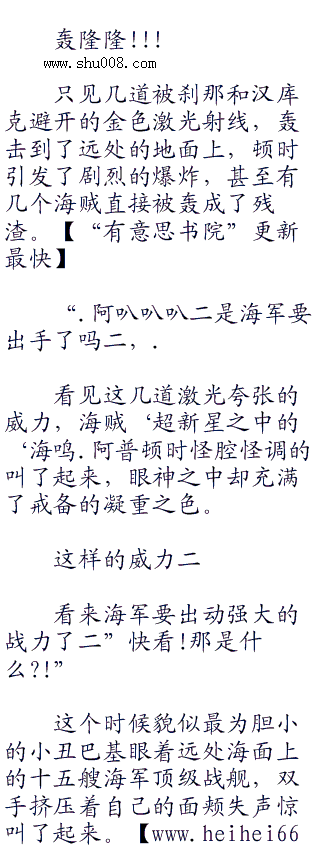 轰隆隆!!!
www.shu008.com
只见几道被刹那和汉库
克避开的金色激光射线，轰
击到了远处的地面上，顿时
引发了剧烈的爆炸，甚至有
几个海贼直接被轰成了残
渣。【“有意思书院”更新
最快】
“.阿叭叭叭二是海军要
出手了吗二，.
看见这几道激光夸张的
威力，海贼‘超新星之中的
‘海鸣.阿普顿时怪腔怪调的
叫了起来，眼神之中却充满
了戒备的凝重之色。
这样的威力二
看来海军要出动强大的
战力了二”快看!那是什
么?!”
这个时候貌似最为胆小
的小丑巴基眼着远处海面上
的十五艘海军顶级战舰，双
手挤压着自己的面颊失声惊
叫了起来。【www.heihei66